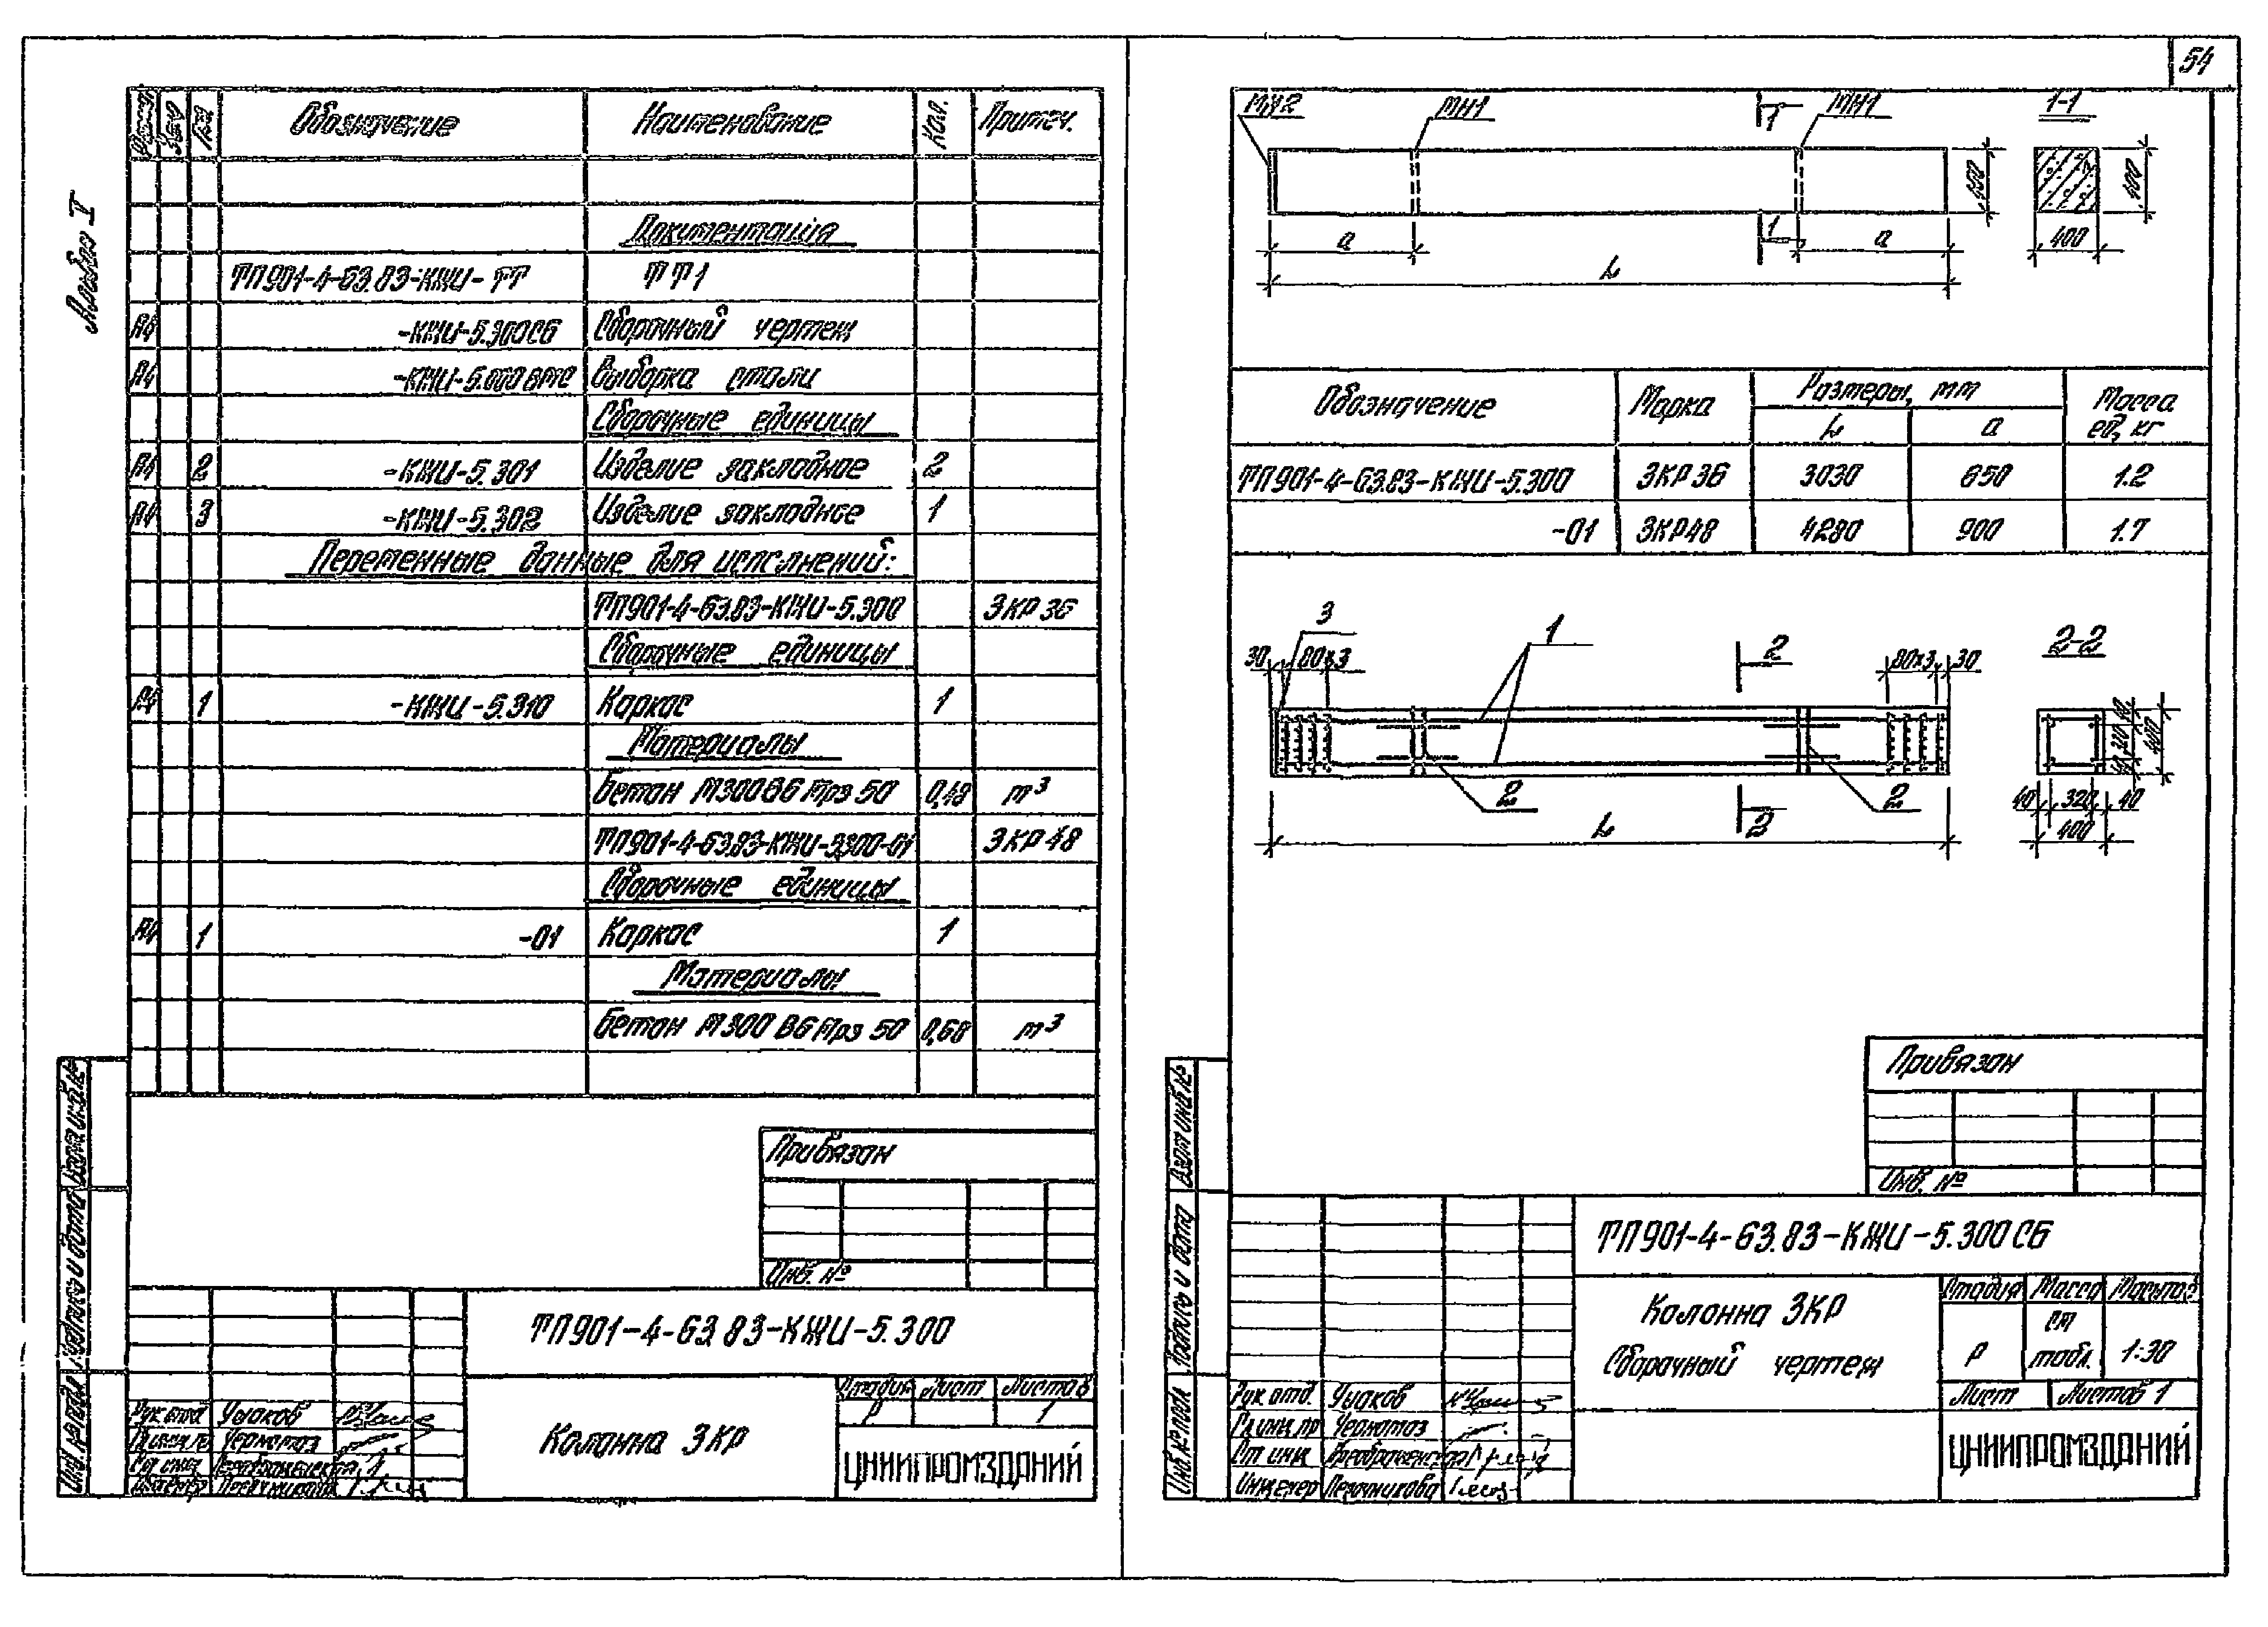 Альбом V
Формат Зона Поз. Обозначение Наименование Кол. Примеч.
Документация
ТП901-4-63.83-КЖИ-ТТ ТТ1
А4 -КЖИ-5.300СБ Сборочный чертеж
А4 -КЖИ-5.000ВМС Выборка стали
Сборочные единицы
А4 2 -КЖИ-5.301 Изделие закладное 2
А4 3 -КЖИ-5.302 Изделие закладное 1
Переменные данные для исполнений:
ТП901-4-63.83-КЖИ-5.300 3КР36
Сборочные единицы
А4 1 -КЖИ-5.310 Каркас 1
Материалы
Бетон М300 В6 Мрз 50 0,48 м³
ТП901-4-63.83-КЖИ-5.300-01 3КР48
Сборочные единицы
А4 1 -01 Каркас 1
Материалы
Бетон М300 В6 Мрз 50 0,68 м³
Привязан
Инв. №
ТП901-4-63.83-КЖИ-5.300
Колонна 3КР
Стадия Лист Листов
Р 1
ЦНИИПРОМЗДАНИЙ
Рук отд Ушаков
Гл инж пр Черномаз
Ст инж Преображенская
Инженер Песочникова
Взам инв. №
Подпись и дата
Инв. № подл
54
МН2 МН1 1 МН1 1-1
400 400
а 1 а 400
L
Обозначение Марка Размеры, мм Масса ед, кг
L а
ТП901-4-63.83-КЖИ-5.300 3КР36 3030 650 1.2
-01 3КР48 4280 900 1.7
3 1 2 2-2
30 80х3 80х3 30
40 320 40 400
2 2
L 2
40 320 40
400
Привязан
Инв. №
ТП901-4-63.83-КЖИ-5.300СБ
Колонна 3КР
Сборочный чертеж
Стадия Масса Масштаб
Р см табл. 1:30
Лист Листов 1
ЦНИИПРОМЗДАНИЙ
Рук отд. Ушаков
Гл инж пр Черномаз
Ст инж Преображенская
Инженер Песочникова
Взам инв №
Подпись и дата
Инв. № подл